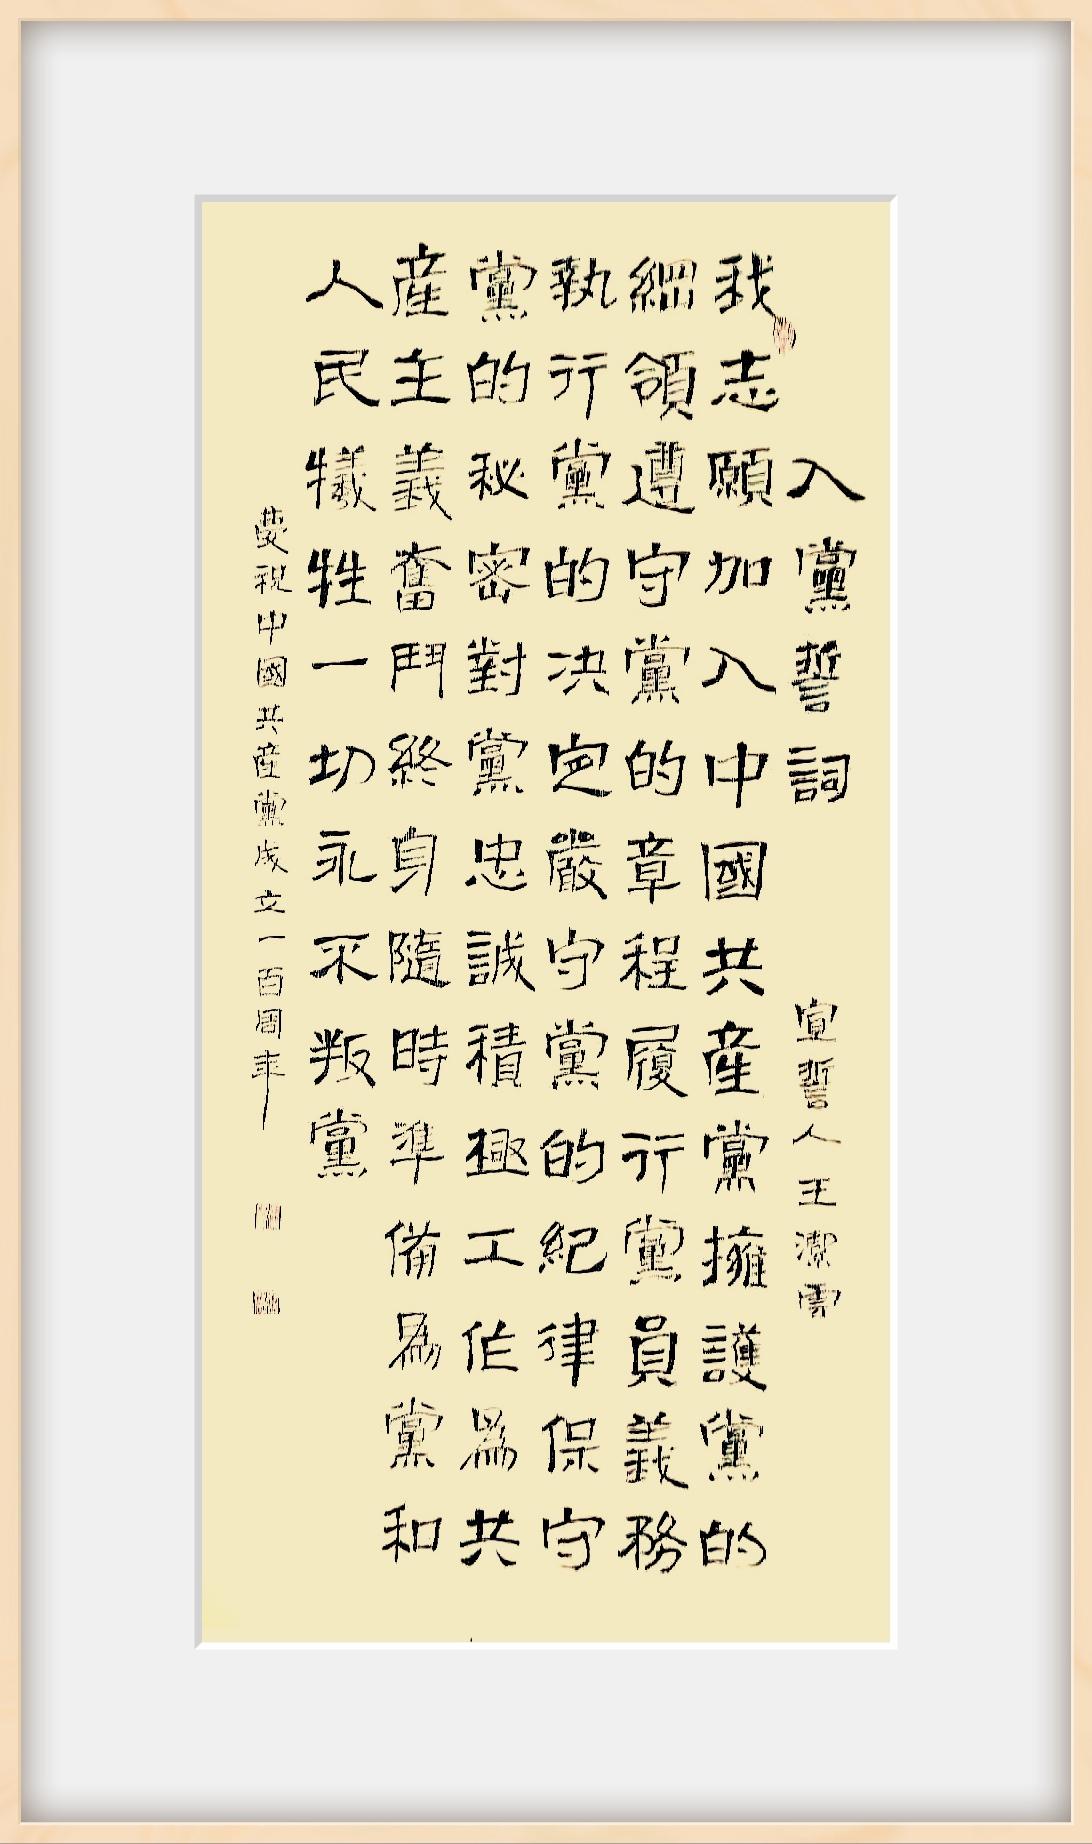 入黨誓詞 宣誓人王潔雪
我志願加入中國共産黨擁護黨的
綱領遵守黨的章程履行黨員義務
執行黨的決定嚴守黨的紀律保守
黨的秘密對黨忠誠積極工作爲共
産主義奮鬥終身隨時準備爲黨和
人民犧牲一切永不叛黨
慶祝中國共産黨成立一百周年